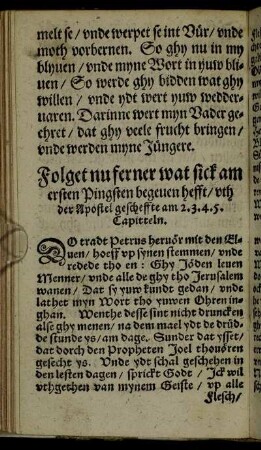 melt se / vnde werpet se int Vůr / vnde
moth vorbernen. So ghy nu in my
blyuen / vnde myne Wort in yuw bli-
uen / So werde ghy bidden wat ghy
willen / vnde ydt wert yuw wedder-
uaren. Darinne wert myn Vader ge-
ehret / dat ghy veele frucht bringen /
vnde werden myne Jüngere.
Folget nu ferner wat sick am
ersten Pingsten begeuen hefft / vth
der Apostel gescheffte am 2.3.4.5.
Capitteln.
DO tradt Petrus heruör mit den El-
uen / hoeff vp synen stemmen / vnde
redede tho en : Ghy Jöden leuen
Menner / vnde alle de ghy tho Jerusalem
wanen / Dat sy yuw kundt gedan / vnde
lathet myn Wort tho yuwen Ohren in-
ghan. Wenthe desse sint nicht druncken
alse ghy menen / na dem mael ydt de drüd-
de stunde ys / am dage. Sunder dat ysset /
dat dorch den Propheten Joel thouören
gesecht ys. Vnde ydt schal geschehen in
den lesten dagen / sprickt Godt / Jck wil
vthgethen van mynem Geiste / vp alle
Flesch /